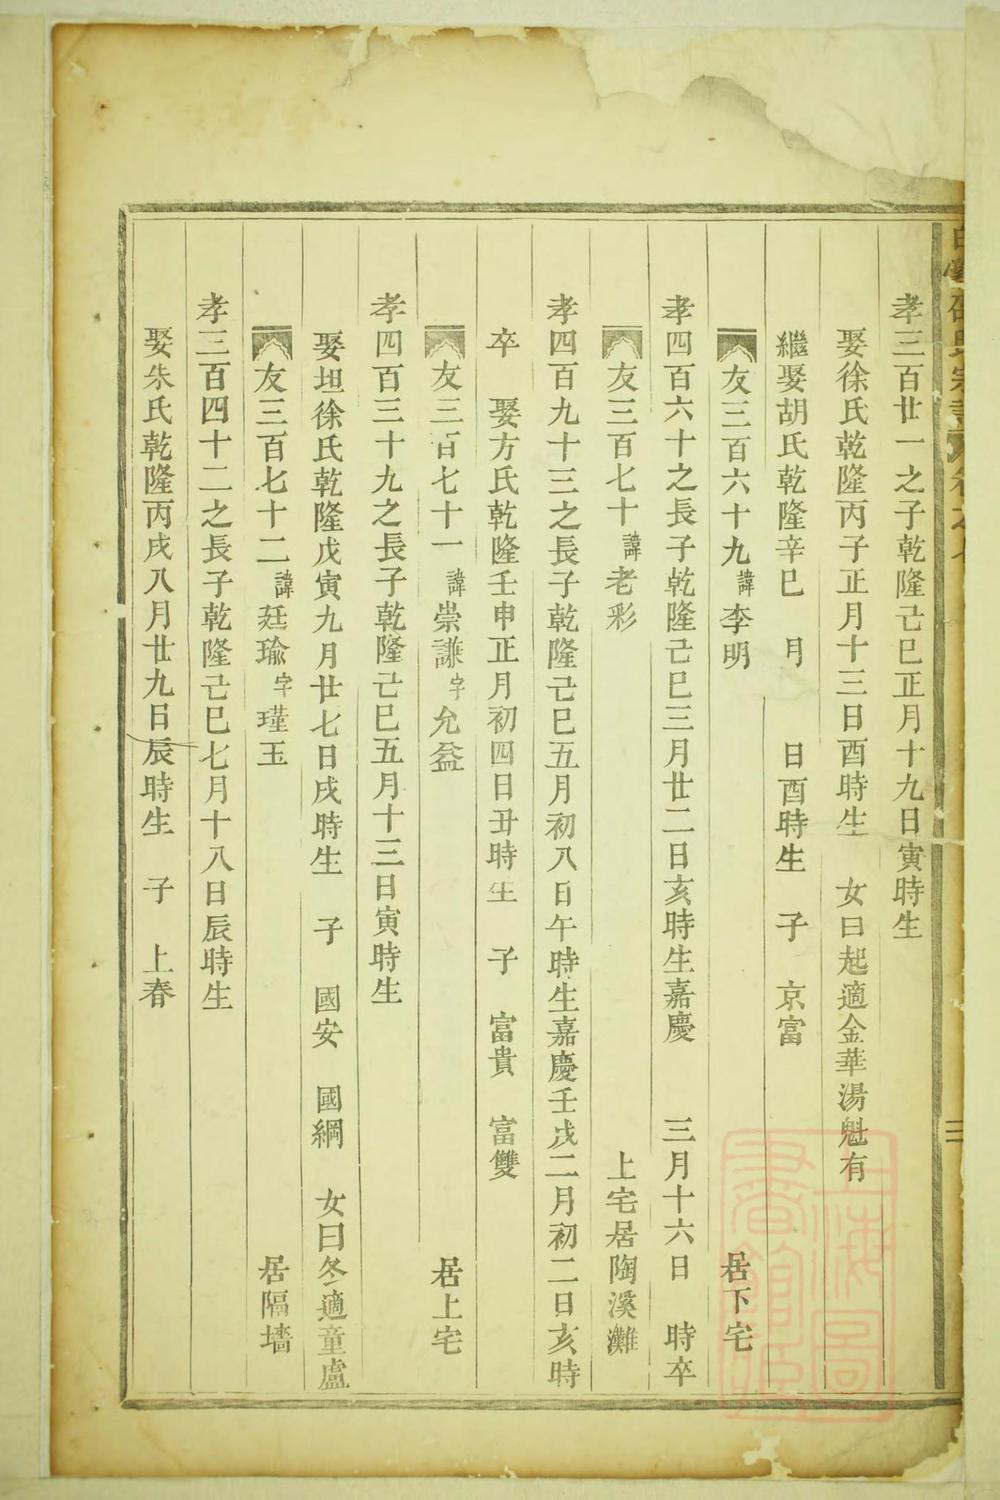 孝三百廿一之子乾隆己巳正月十九日寅時生
娶徐氏乾隆丙子正月十三日酉時生 女曰起適金華湯魁有
繼娶胡氏乾隆辛巳 月 日酉時生 子 京富
友三百六十九諱李明 居下宅
孝四百六十之長子乾隆己巳三月廿二日亥時生嘉慶 三月十六日 時卒
友三百七十諱老彩 上宅居陶溪灘
孝四百九十三之長子乾隆己巳五月初八日午時生嘉慶壬戌二月初二日亥時
卒 娶方氏乾隆壬申正月初四日丑時生 子 富貴 富雙
友三百七十一諱崇謙字允益 居上宅
孝四百三十九之長子乾隆己巳五月十三日寅時生
娶坦徐氏乾隆戊寅九月廿七日戌時生 子 國安 國綱 女曰冬適童盧
友三百七十二諱廷瑜字瑾玉 居隔墻
孝三百四十二之長子乾隆己巳七月十八日辰時生
娶朱氏乾隆丙戌八月廿九日辰時生 子 上春
上海圖書館藏